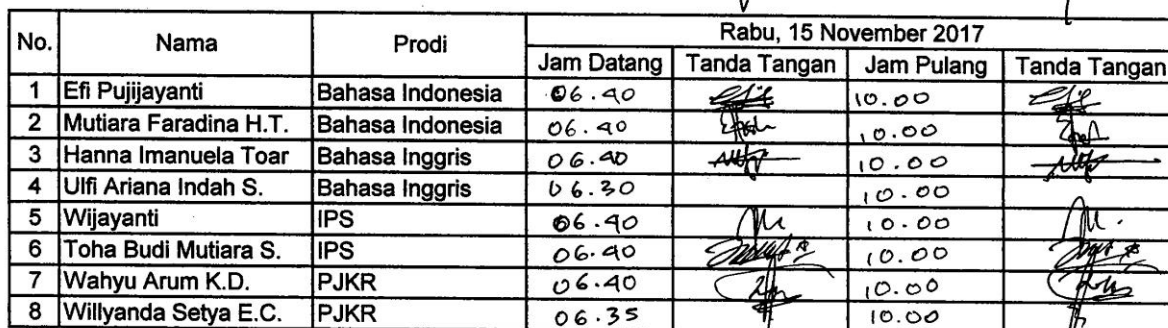 No. Nama Prodi Rabu, 15 November 2017
Jam Datang Tanda Tangan Jam Pulang Tanda Tangan
1 Efi Pujijayanti Bahasa Indonesia 06.40 10.00
2 Mutiara Faradina H.T. Bahasa Indonesia 06.40 10.00
3 Hanna Imanuela Toar Bahasa Inggris 06.40 10.00
4 Ulfi Ariana Indah S. Bahasa Inggris 06.30 10.00
5 Wijayanti IPS 06.40 10.00
6 Toha Budi Mutiara S. IPS 06.40 10.00
7 Wahyu Arum K.D. PJKR 06.40 10.00
8 Willyanda Setya E.C. PJKR 06.35 10.00